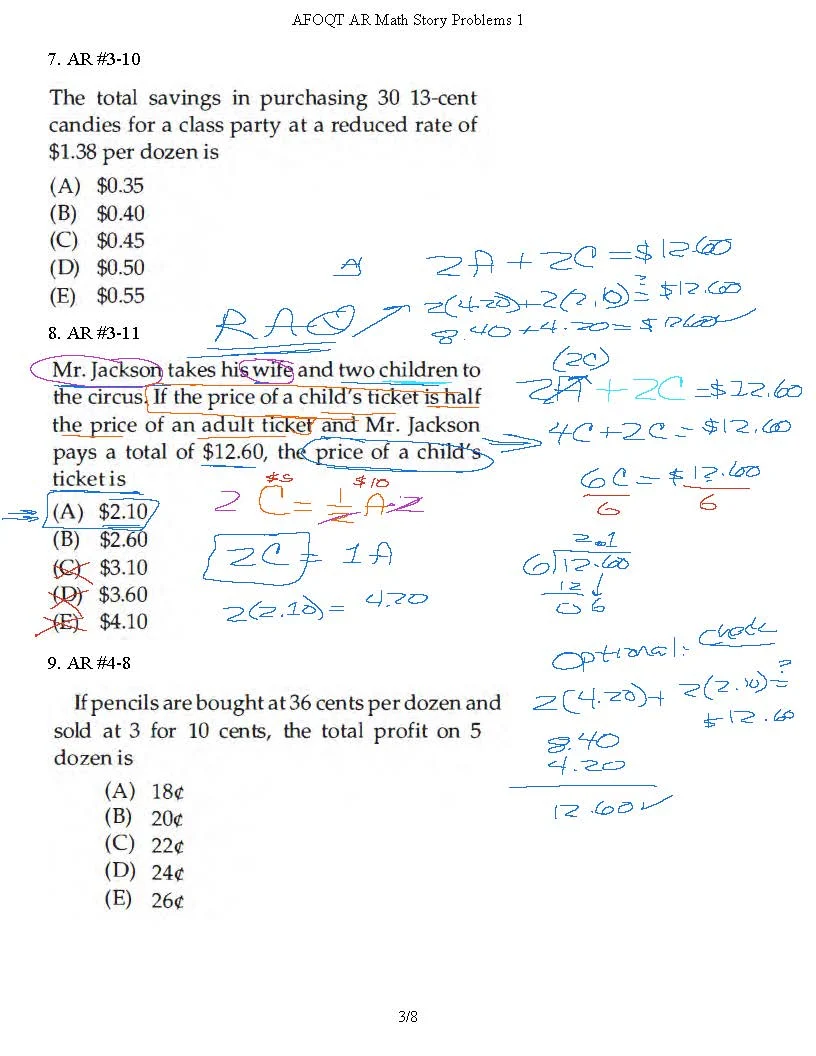 AFOQT AR Math Story Problems 1
7. AR #3-10
The total savings in purchasing 30 13-cent
candies for a class party at a reduced rate of
$1.38 per dozen is
(A) $0.35
(B) $0.40
(C) $0.45
(D) $0.50
(E) $0.55
A
2A + 2C = $12.60
2(4.20)+2(2.10) ?= $12.60
8.40 + 4.20 = $12.60 ✓
RAO
8. AR #3-11
Mr. Jackson takes his wife and two children to
the circus. If the price of a child's ticket is half
the price of an adult ticket and Mr. Jackson
pays a total of $12.60, the price of a child's
ticket is
(A) $2.10
(B) $2.60
(C) $3.10
(D) $3.60
(E) $4.10
$5 $10
2 C = 1/2 A·2
2C = 1A
2(2.10) = 4.20
(2C)
2A + 2C = $12.60
4C + 2C = $12.60
6C = $12.60
6 6
2.1
6)12.60
12
06
Optional: Check
2(4.20)+ 2(2.10) ?=
$12.60
8.40
4.20
12.60 ✓
9. AR #4-8
If pencils are bought at 36 cents per dozen and
sold at 3 for 10 cents, the total profit on 5
dozen is
(A) 18¢
(B) 20¢
(C) 22¢
(D) 24¢
(E) 26¢
3/8